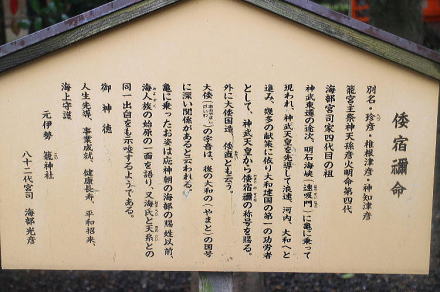 倭宿禰命
別名・珍彦・椎根津彦・神知津彦
籠宮主祭神天孫彦火明命第四代
海部宮司家四代目の祖
神武東遷の途次、明石海峡(速吸門)に亀に乗って
現われ、神武天皇を先導して浪速、河内、大和へと
進み、幾多の献策に依り大和建国の第一の功労者
として、神武天皇から倭宿禰の称号を賜る。
外に大倭国造、倭直とも云う。
大倭の字音は、後の大和(やまと)の国号
に深い関係があると云われる。
亀に乗ったお姿は応神朝の海部の賜姓以前、
海人族の始原の一面を語り、又海氏と天系との
同一出自をも示唆するようである。
御神徳
人生先導、事業成就、健康長寿、平和招来、
海上守護
元伊勢 籠神社
八十二代宮司 海部光彦